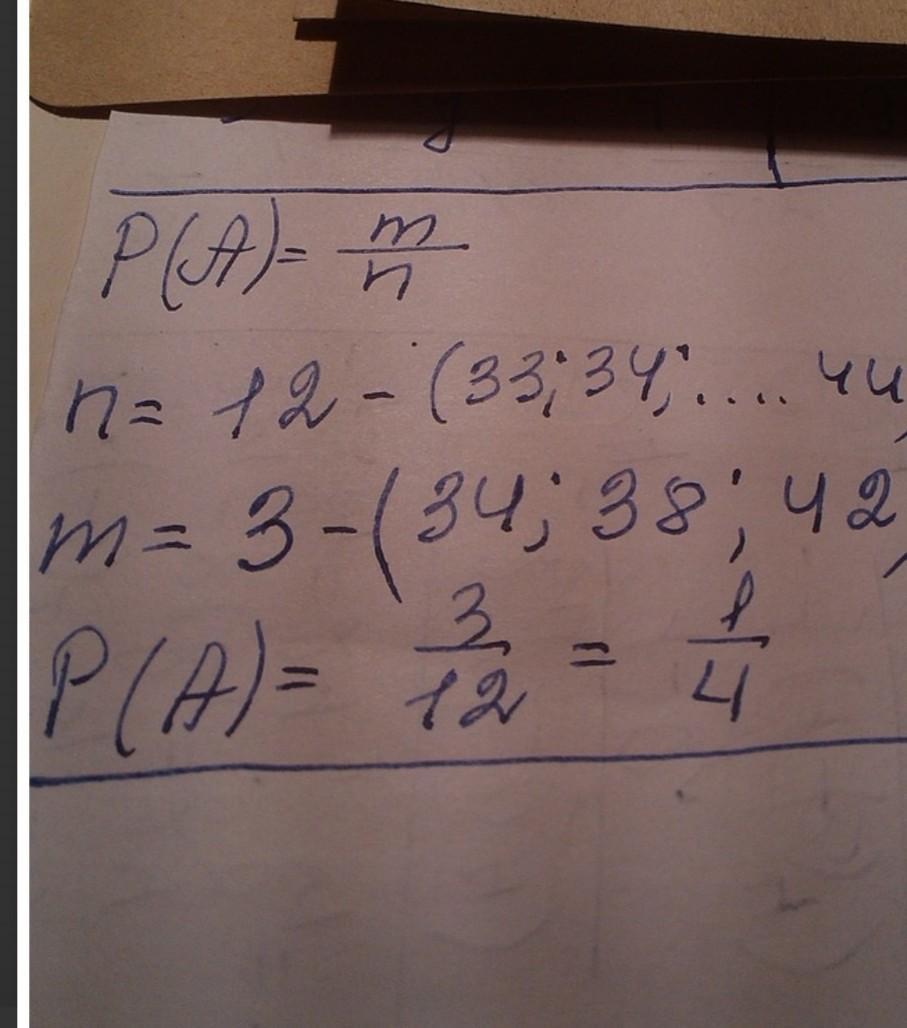 P(A) = m/n
n = 12 - (33; 34; .... 44
m = 3 - (34; 38; 42)
P(A) = 3/12 = 1/4